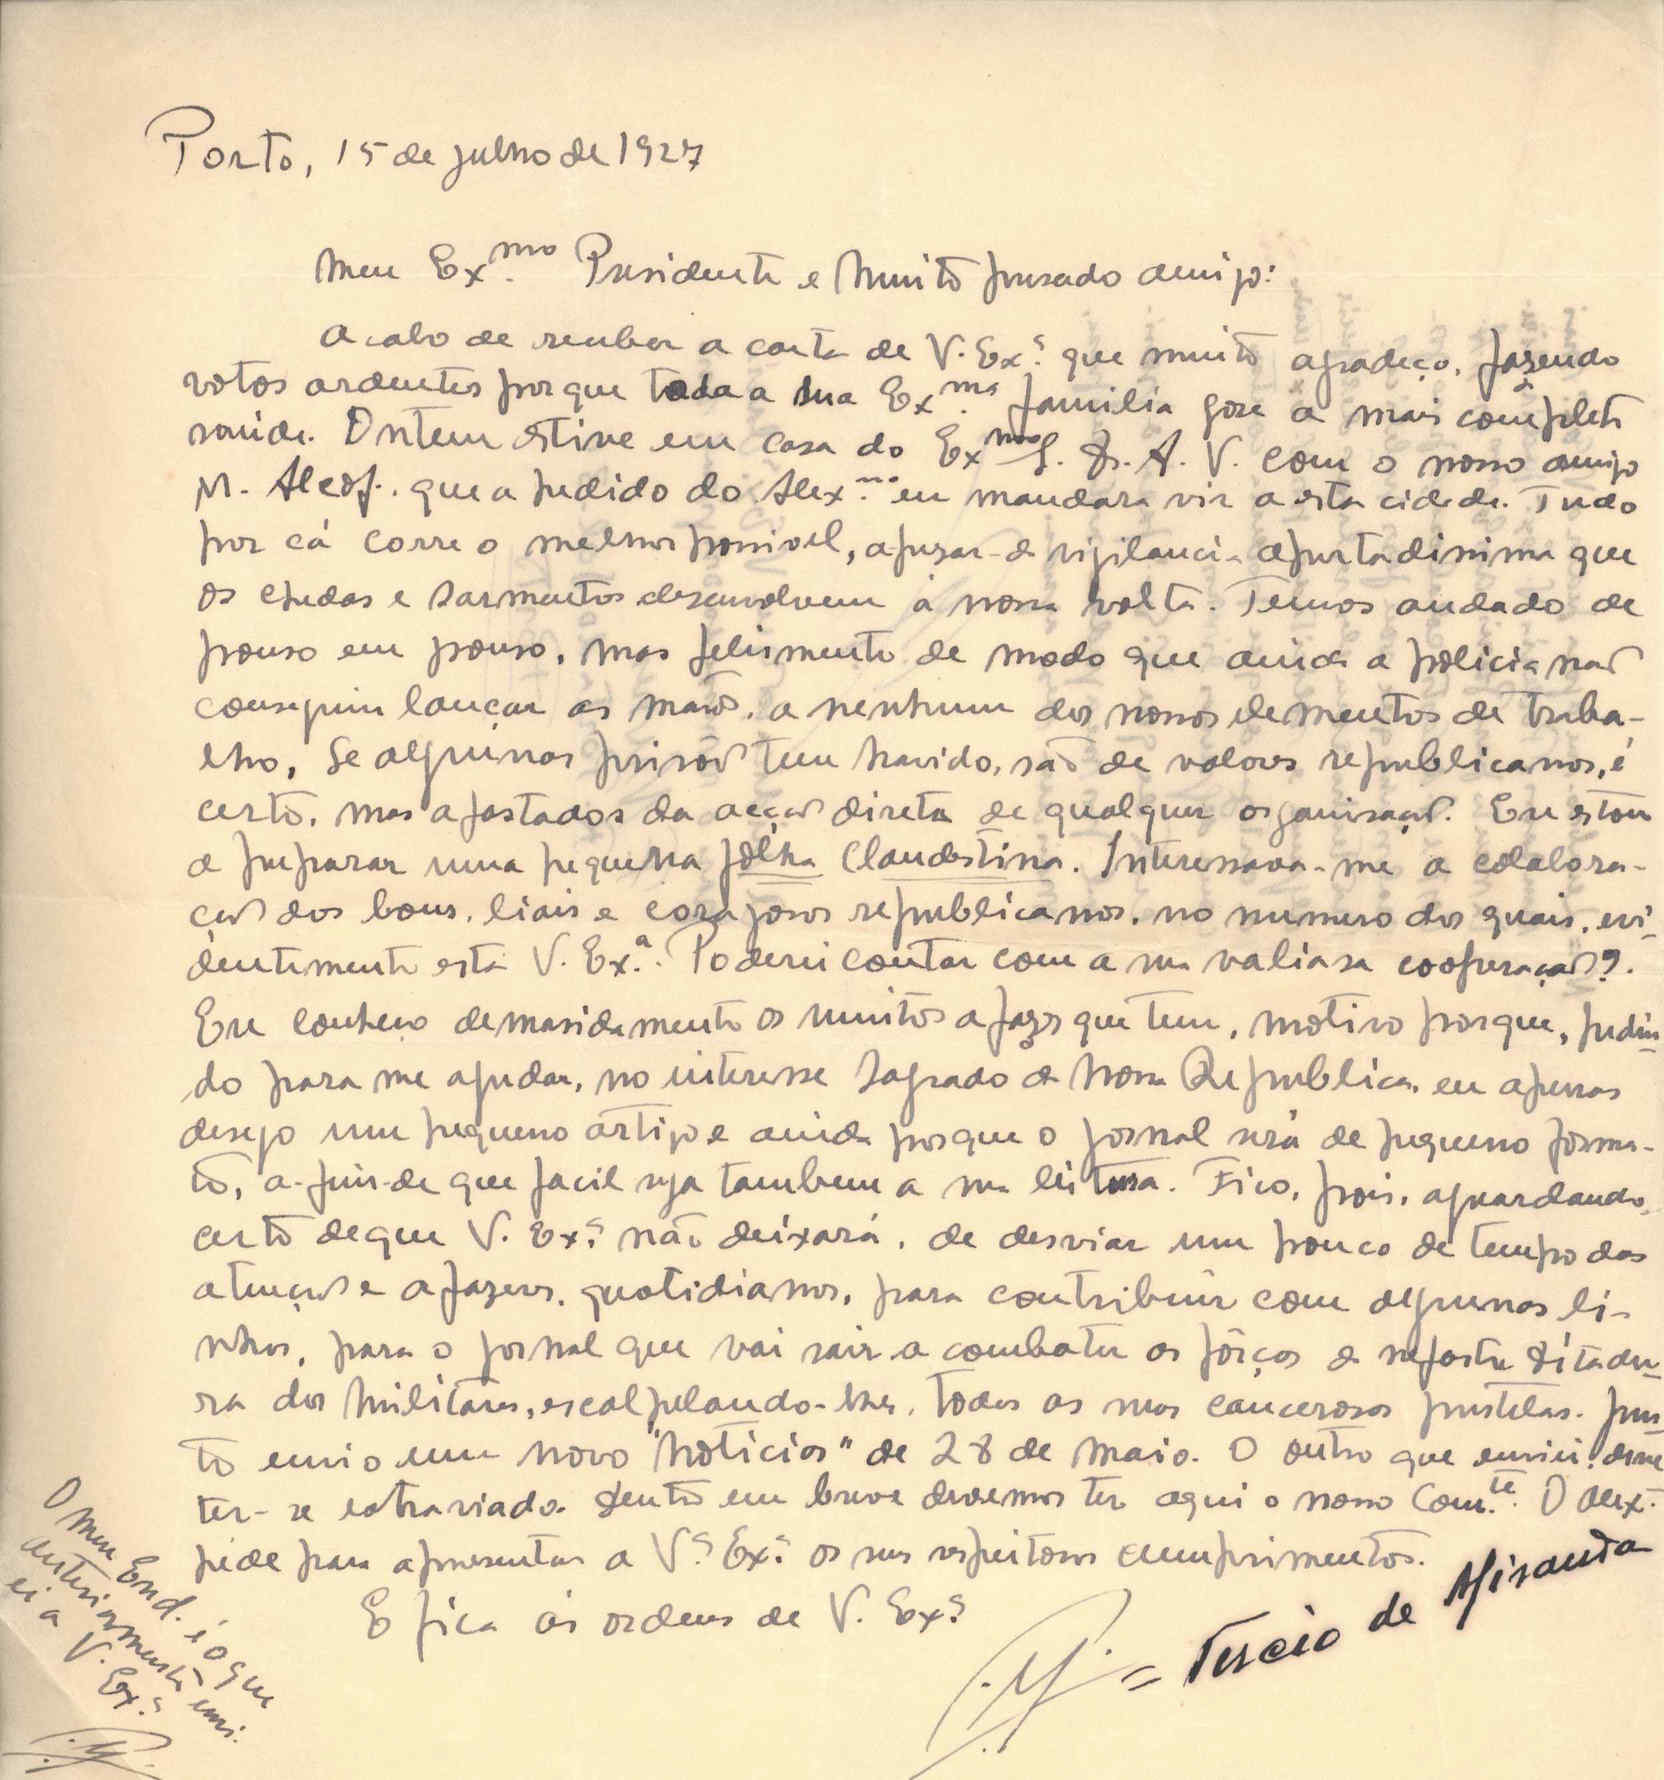 Porto, 15 de julho de 1927
Meu Ex.mo Presidente e muito presado amigo:
Acabo de receber a carta de V. Ex.ª que muito agradeço, fazendo
votos ardentes porque toda a sua Ex.ma familia gose a mais complèta
saúde. Ontem estive em casa do Ex.mo S. Dr. A. V. com o nosso amigo
M. Alcof. que a pedido do Alex.re eu mandara vir a esta cidade. Tudo
por cá corre o melhor possivel, apesar-da vigilancia apertadissima que
os espedas e sarmentos desenvolvem á nossa volta. Temos andado de
pouso em pouso, mas felismente de modo que ainda a policia não
conseguiu lançar as mãos, a nenhum dos nossos elementos de traba-
lho. Se algumas prisões tem havido, são de valores republicanos, é
certo, mas afastados da acção direta de qualquer organisação. Eu estou
a preparar uma pequena fôlha clandestina. Interessava-me a colabora-
ção dos bons, liais e corajosos republicanos, no numero dos quais, evi-
dentemente está V. Ex.ª. Poderei contar com a sua valiosa cooperação?.
Eu conheço demasidamente os muitos afazeres que tem, motivo porque, pedin-
do para me ajudar, no interesse sagrado da nossa Republica, eu apenas
desejo um pequeno artigo e ainda porque o jornal será de pequeno forma-
to, a-fim-de que facil seja tambem a sua leitura. Fico, pois, aguardando,
certo de que V. Ex.ª não deixará, de desviar um pouco de tempo das
atenções e afazeres, quotidianos, para contribuir com algumas li-
nhas, para o jornal que vai sair a combater as fôrças da nefasta ditadu-
ra dos militares, escalpelando-lhes, todas as suas cancerosas pustulas. Jun-
to envio um novo "Noticias" de 28 de Maio. O outro que enviei, deve
ter-se extraviado. Dentro em breve devemos ter aqui o nosso Com.te. O Alex.
pede para apresentar a V.ª Ex.ª os seus respeitosos cumprimentos.
E fica ás ordens de V. Ex.ª
= Tercio de Miranda
O meu End. é o que
anteriormente envi-
ei a V. Ex.ª